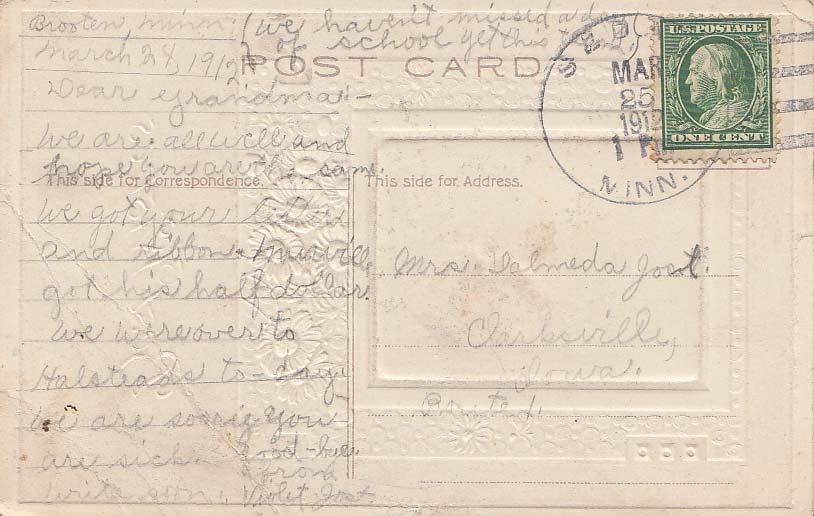 Brooten, Minn.
March 24, 1912
(We haven't missed a da
of school yet this
POST CARD
Dear Grandma:-
We are all well and
hope you are the same.
This side for Correspondence.
We got your letter
and ribbon &
got his half dollar.
We were over to
Halsteads to-day.
We are sorrig you
are sick.
write soon.
Good-bye
from
Violet Jost
This side for Address.
Mrs. Valmeda Jost.
Clarksville,
Iowa.
Route 1.
MAR
25
1912
1 P
MINN.
U.S. POSTAGE
ONE CENT